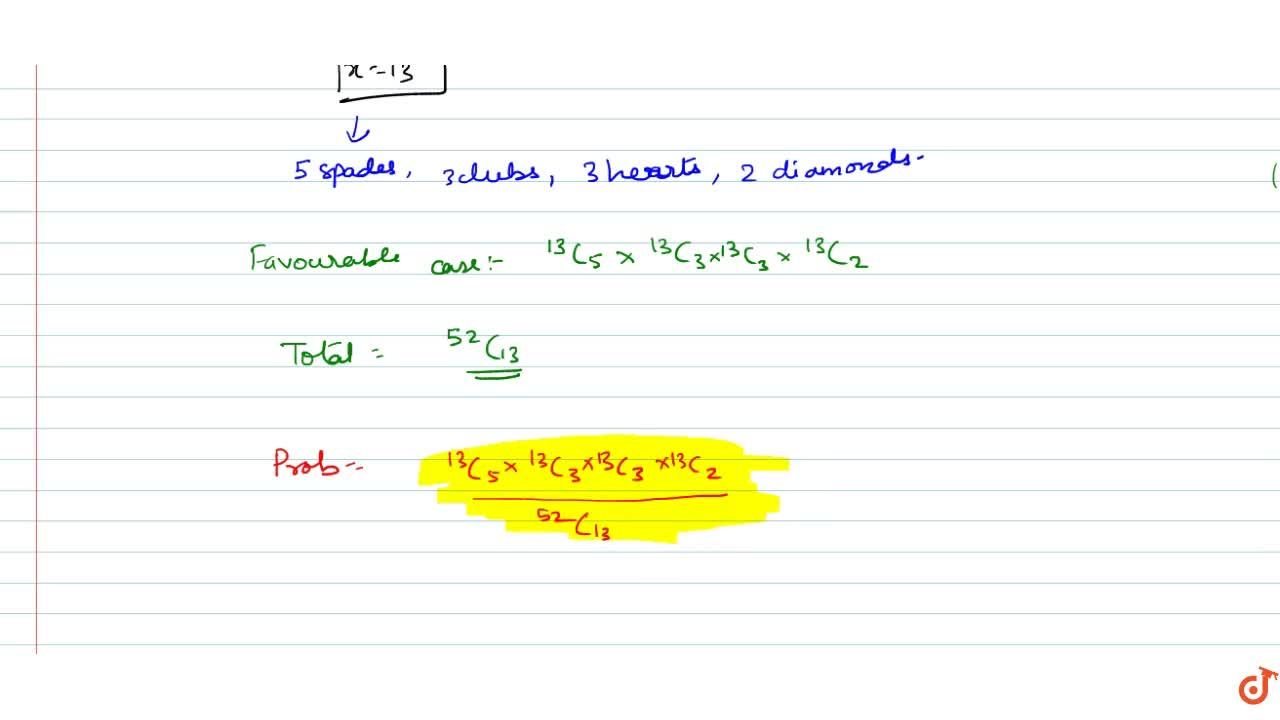 x=13
↓
5 spades, 3 clubs, 3 hearts, 2 diamonds.
(
Favourable case:- ¹³C₅ × ¹³C₃ × ¹³C₃ × ¹³C₂
Total = ⁵²C₁₃
Prob = ¹³C₅ × ¹³C₃ × ¹³C₃ × ¹³C₂
⁵²C₁₃